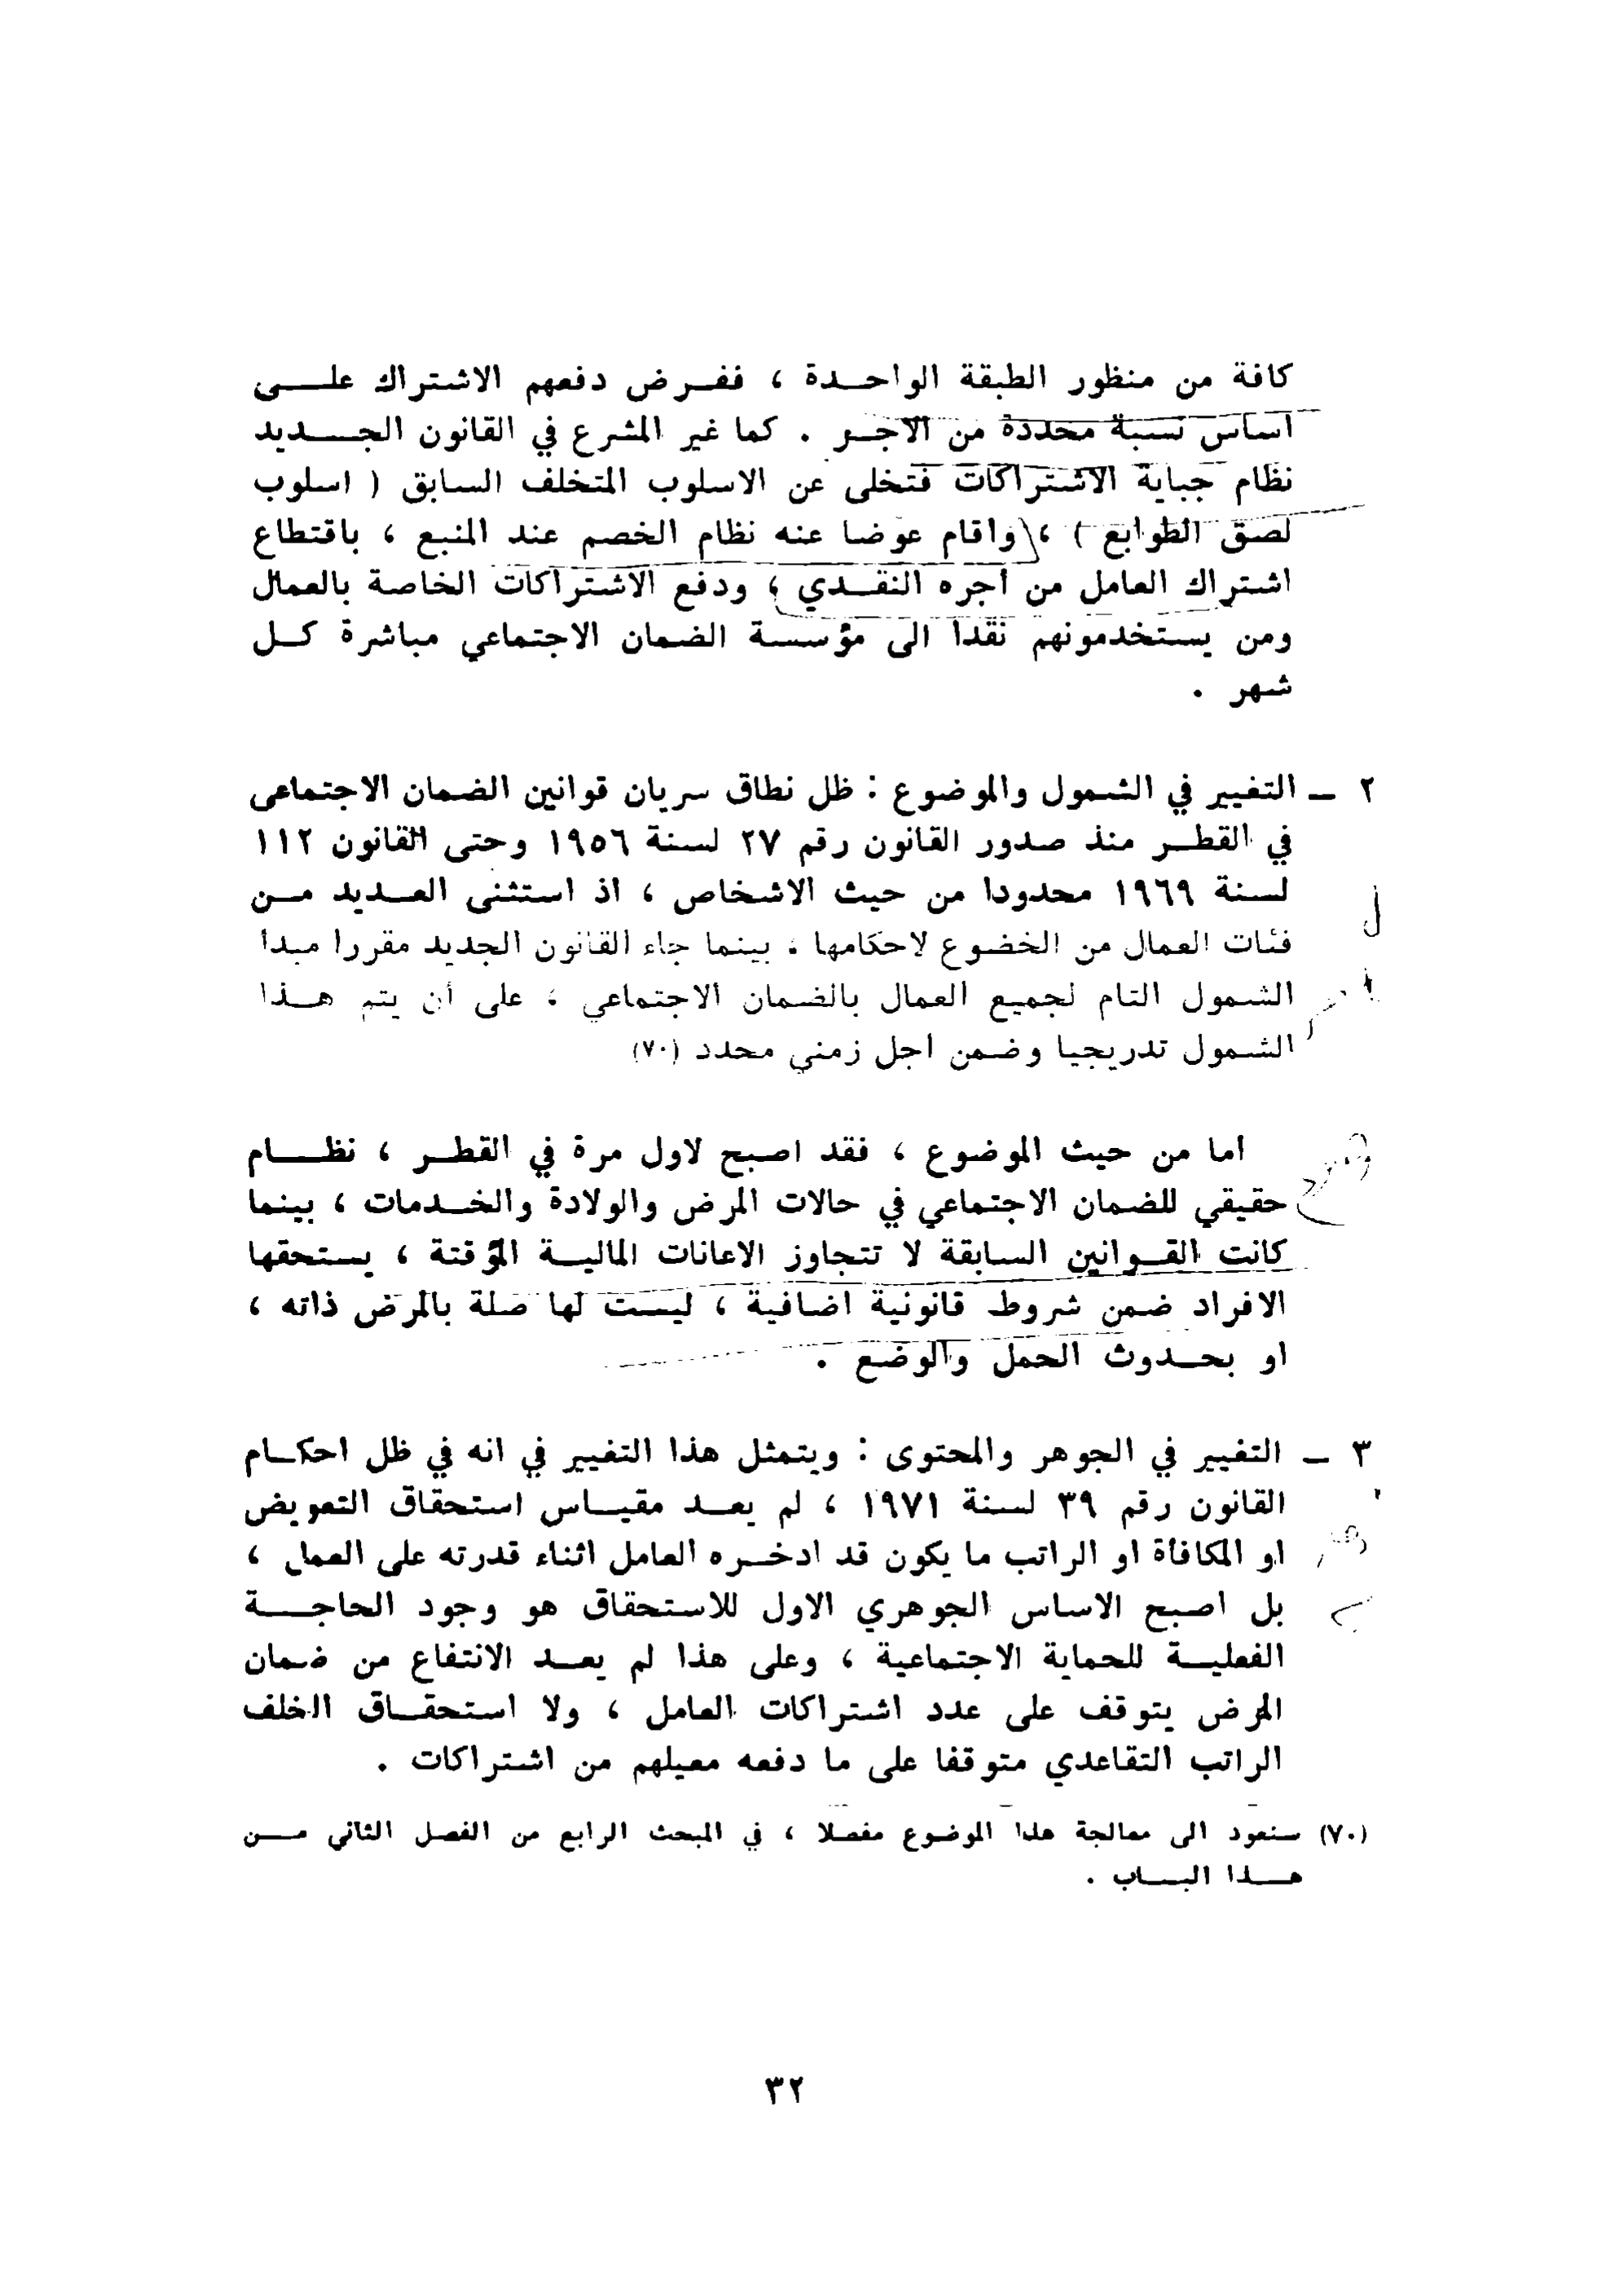 كافة من منظور الطبقة الواحدة ، ففرض دفعهم الاشتراك على
اساس نسبة محددة من الاجر . كما غير المشرع في القانون الجديد
نظام جباية الاشتراكات فتخلى عن الاسلوب المتخلف السابق ( اسلوب
لصق الطوابع ) ، واقام عوضا عنه نظام الخصم عند المنبع ، باقتطاع
اشتراك العامل من اجره النقدي ، ودفع الاشتراكات الخاصة بالعمال
ومن يستخدمونهم نقدا الى مؤسسة الضمان الاجتماعي مباشرة كل
شهر .
٢ – التغيير في الشمول والموضوع : ظل نطاق سريان قوانين الضمان الاجتماعى
في القطر منذ صدور القانون رقم ٢٧ لسنة ١٩٥٦ وحتى القانون ١١٢
لسنة ١٩٦٩ محدودا من حيث الاشخاص ، اذ استثنى العديد من
فئات العمال من الخضوع لاحكامها ، بينما جاء القانون الجديد مقررا مبدا
الشمول التام لجميع العمال بالضمان الاجتماعي ، على أن يتم هذا
الشمول تدريجيا وضمن اجل زمني محدد (٧٠)
اما من حيث الموضوع ، فقد اصبح لاول مرة في القطر ، نظام
حقيقي للضمان الاجتماعي في حالات المرض والولادة والخدمات ، بينما
كانت القوانين السابقة لا تتجاوز الاعانات المالية المؤقتة ، يستحقها
الافراد ضمن شروط قانونية اضافية ، ليست لها صلة بالمرض ذاته ،
او بحدوث الحمل والوضع .
٣ – التغيير في الجوهر والمحتوى : ويتمثل هذا التغيير في انه في ظل احكام
القانون رقم ٣٩ لسنة ١٩٧١ ، لم يعد مقياس استحقاق التعويض
او المكافأة او الراتب ما يكون قد ادخره العامل اثناء قدرته على العمل ،
بل اصبح الاساس الجوهري الاول للاستحقاق هو وجود الحاجة
الفعلية للحماية الاجتماعية ، وعلى هذا لم يعد الانتفاع من ضمان
المرض يتوقف على عدد اشتراكات العامل ، ولا استحقاق الخلف
الراتب التقاعدي متوقفا على ما دفعه معيلهم من اشتراكات .
(٧٠) سنعود الى معالجة هذا الموضوع مفصلا ، في المبحث الرابع من الفصل الثاني من
هذا الباب .
٣٢